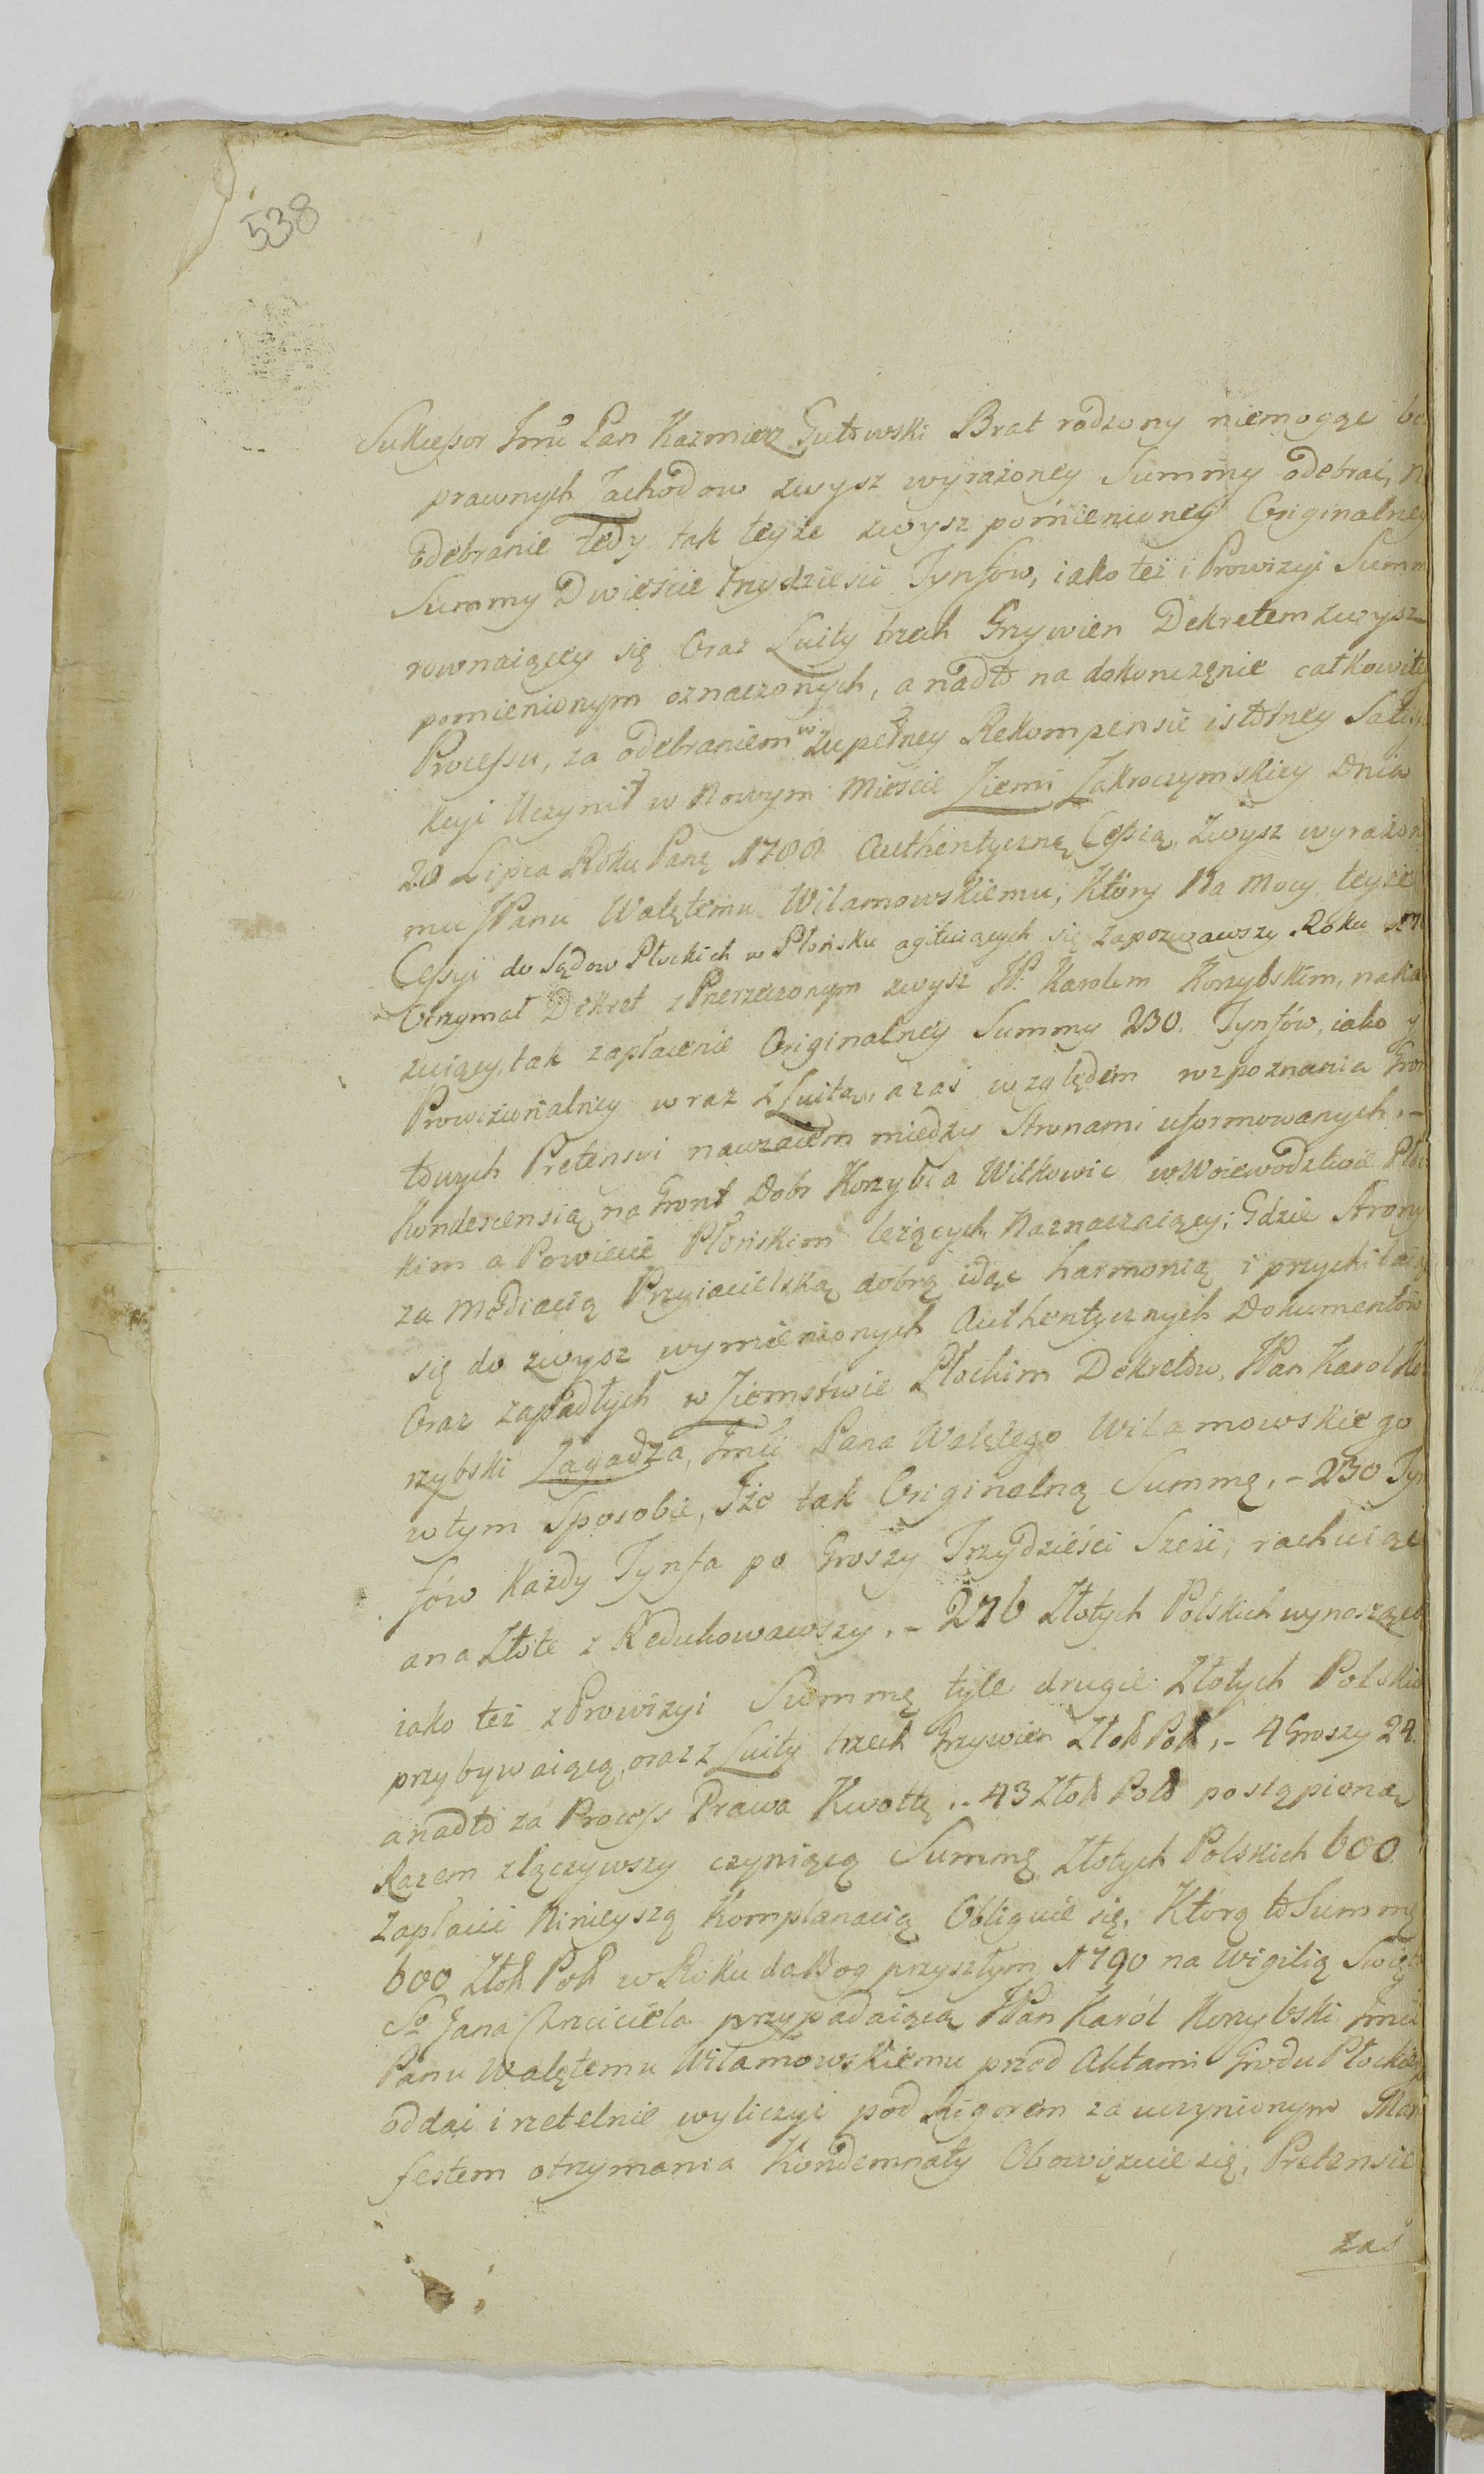 538
Sukcessor Jmć Pan Kazmierz Gutowski Brat rodzony niemogąc be
prawnych Zachodow zwysz wyrażoney Summy odebrać, n
odebranie tedy tak teyże zwysz pomienioney Originalney
Summy Dwieście trzydzieści Tynfów, iako też i Prowizyi Summ
rownaiącey się Oraz Luity trzech Grzywien Dekretem zwysz
pomienionym oznaczonych, a nadto na dokonczenie całkowite
Processu, za odebraniem w zupełney Rekompensie istotney Satys
kcyi Uczynił w Nowym Mieście Ziemi Zakroczymskiey Dnia
20 Lipca Roku Pańą 1788 Authentyczną Cessią, Zwysz wyrażon
mu JPanu Walętemu Wilamowskiemu, Który Na mocy teyże
Cessyi do Sądow Płockich w Płońsku agituiących się zapozwawszy Roku
Otrzymał Dekret z Przerzeczonym zwysz JP. Karolem Korzybskim, naka
zuiący, tak zapłacenie Originalney Summy 230. Tynfów, iako y
Prowizionalney wraz z Luitą, a zaś względem rozpoznania Gron
towych Pretensyi nawzaiem miedzy Stronami uformowanych,-
Kondescensią na Gront Dobr Korzybia Witkowic w Woiewodztwie Płoc
kim a Powiecie Płońskim leżących, Naznaczaiący; Gdzie Strony
za Mediacią Przyiacielską dobrą idąc harmonią i przychilaią
się do zwysz wymienionych Authentycznych Dokumentów
Oraz zapadłych w Ziemstwie Płockim Dekretów, JPan Karol Ko
rzybski Zagadza, Jmć Pana Walętego Wilamowskiego
w tym Sposobie, Iże tak Originalną Summę,- 230 Tyn
fów Każdy Tynfa po Groszy Trzydzieści Sześć, rachuiąc
a na Złote z Redukowawszy,- 276 Złotych Polskich wynoszące
iako też z Prowizyi Summę tyle drugie Złotych Polskic
przybywaiącą, oraz z Luity trzech Grzywien Złoł Pol,- 4 Groszy 24.
a nadto za Process Prawa Kwotę,- 43 Złoł Pol postąpioną
Razem złączywszy czyniącą Summę Złotych Polskich 600.
Zapłacić Ninieyszą Komplanacią Obliguie się, Którą to Summę
600 Złoł Pol w Roku da Bog przyszłym 1790 na Wigilią Swięt
So Jana Chrzciciela przypadaiącą JPan Karól Korzybski Jmć
Panu Walętemu Wilamowskiemu przed Aktami Grodu Płockieg
oddać i rzetelnie wyliczyć pod Rigorem za uczynionym Man
festem otrzymania Kondemnaty Obowięzuie się, Pretensie
zaś